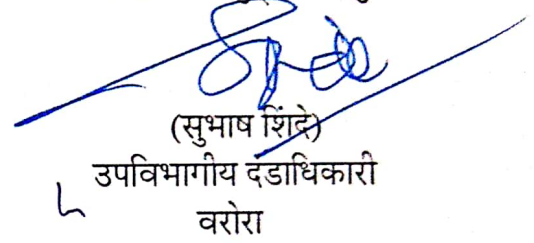 (सुभाष शिंदे)
उपविभागीय दंडाधिकारी
वरोरा